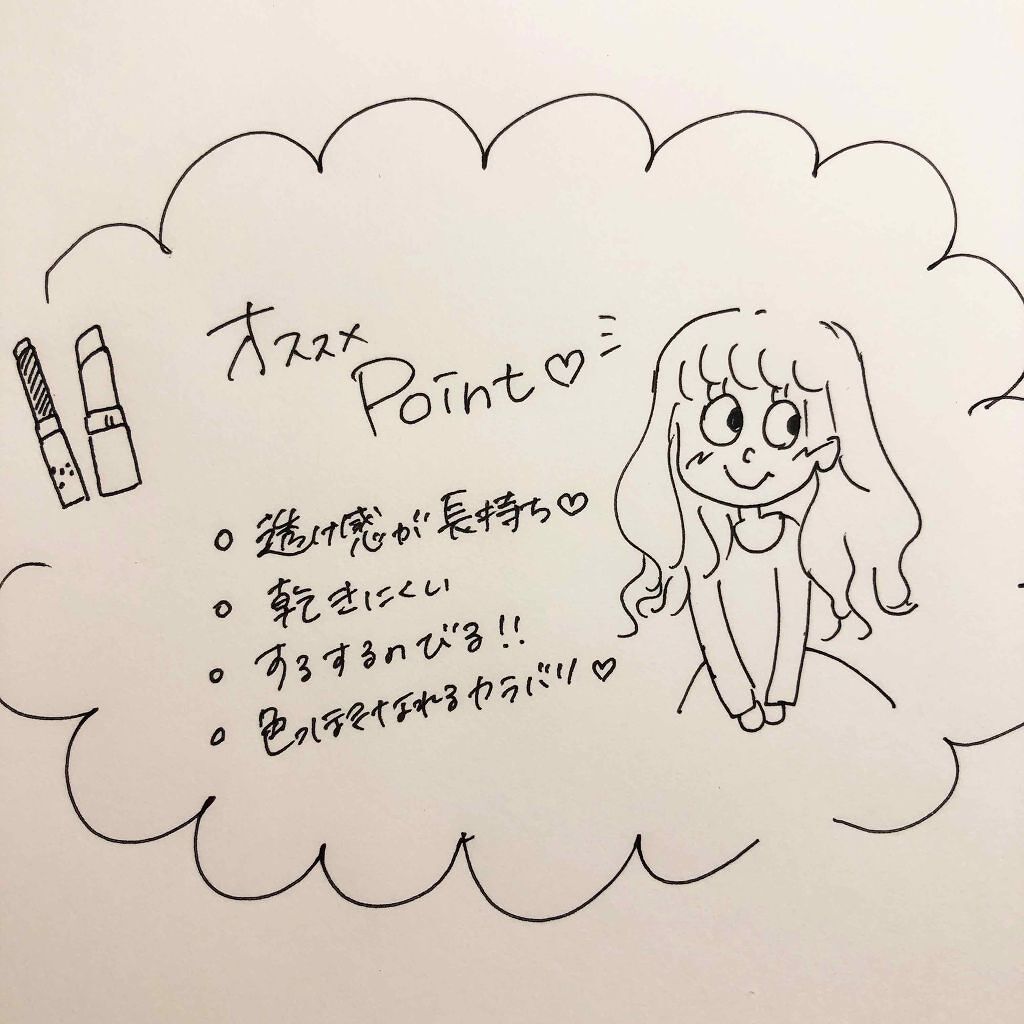 オススメ
Point♡
○ 透け感が長持ち♡
○ 乾きにくい
○ するするのびる!!
○ 色っぽくなれるカラバリ♡